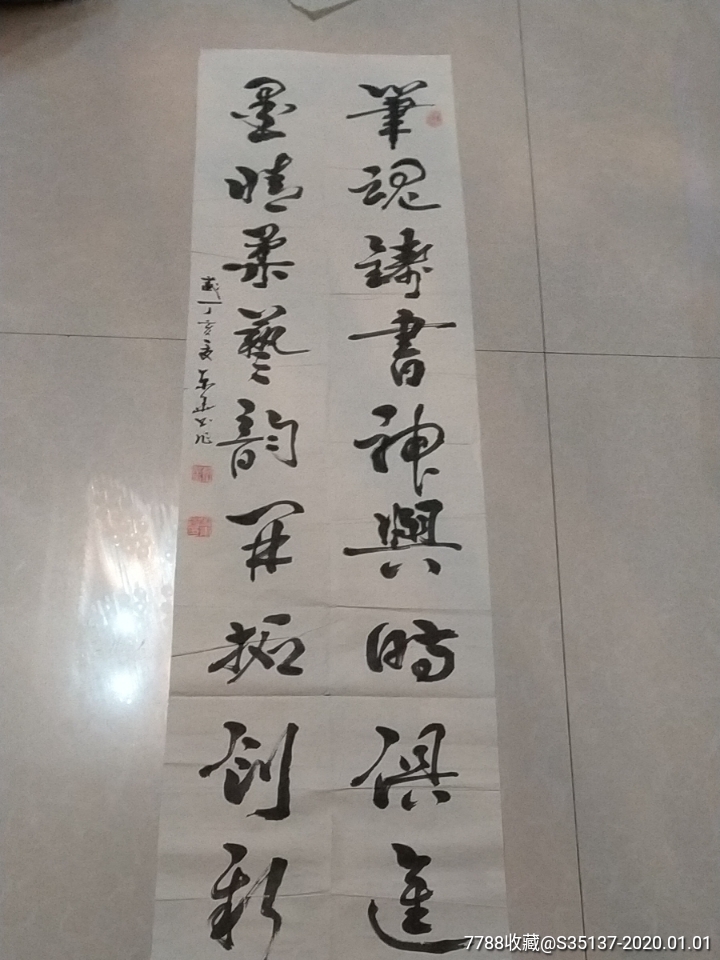 筆魂鑄書神與時俱進
墨情柔藝韵開拓創新
7788收藏@S35137-2020.01.01